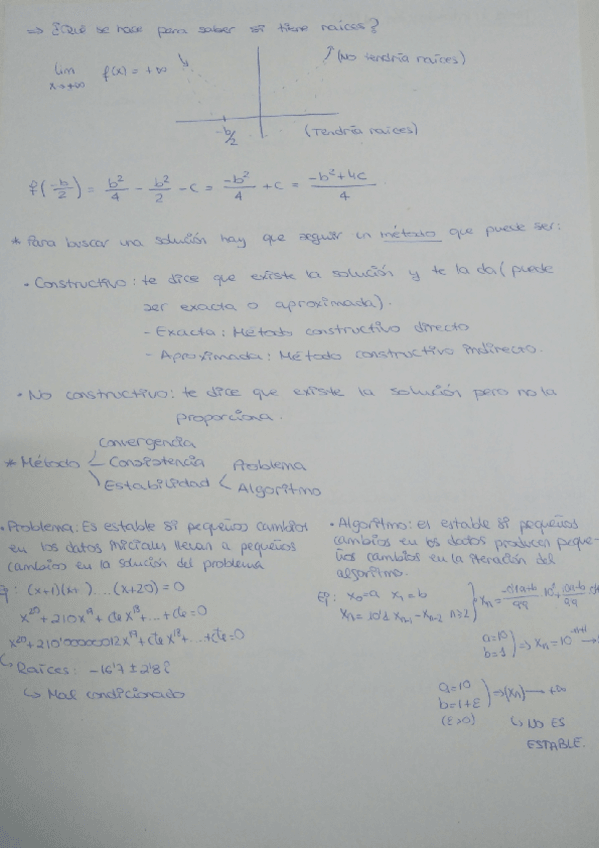 => ¿Qué se hace para saber si tiene raíces?
lim f(x) = +∞
x→+∞
(No tendría raíces)
-b/2
(Tendría raíces)
f(-b/2) = b²/4 - b²/2 - c = -b²/4 + c = (-b²+4c)/4
* Para buscar una solución hay que seguir un método que puede ser:
• Constructivo: te dice que existe la solución y te la da (puede
ser exacta o aproximada).
- Exacta: Método constructivo directo
- Aproximada: Método constructivo indirecto.
• No constructivo: te dice que existe la solución pero no la
proporciona.
Convergencia
* Método Consistencia
Estabilidad
Problema
Algoritmo
• Problema: Es estable si pequeños cambios
en los datos iniciales llevan a pequeños
cambios en la solución del problema
(x+1)(x+ )....(x+20) = 0
x²⁰+210x¹⁹+cte x¹⁸+...+cte=0
x²⁰+210'00000012x¹⁹+cte x¹⁸+...+cte=0
Raíces: -16'7 ± 2'8i
Mal condicionado
• Algoritmo: es estable si pequeños
cambios en los datos producen peque-
ños cambios en la iteración del
algoritmo.
Ej: x₀=a x₁=b
xₙ = 10'1 xₙ₋₁ - xₙ₋₂ n≥2
a=10
b=1 => xₙ = 10⁻ⁿ⁺¹ →
a=10
b=1+ε => (xₙ) → +∞
(ε>0)
NO ES
ESTABLE.